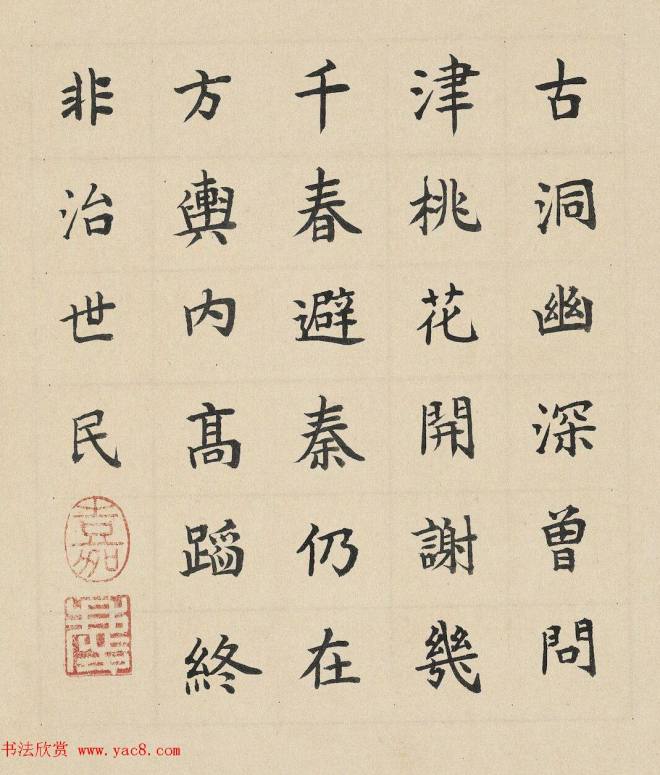 古洞幽深曽問
津桃花開謝幾
千春避秦仍在
方輿内髙蹈終
非治世民
嘉
慶
书法欣赏 www.yac8.com